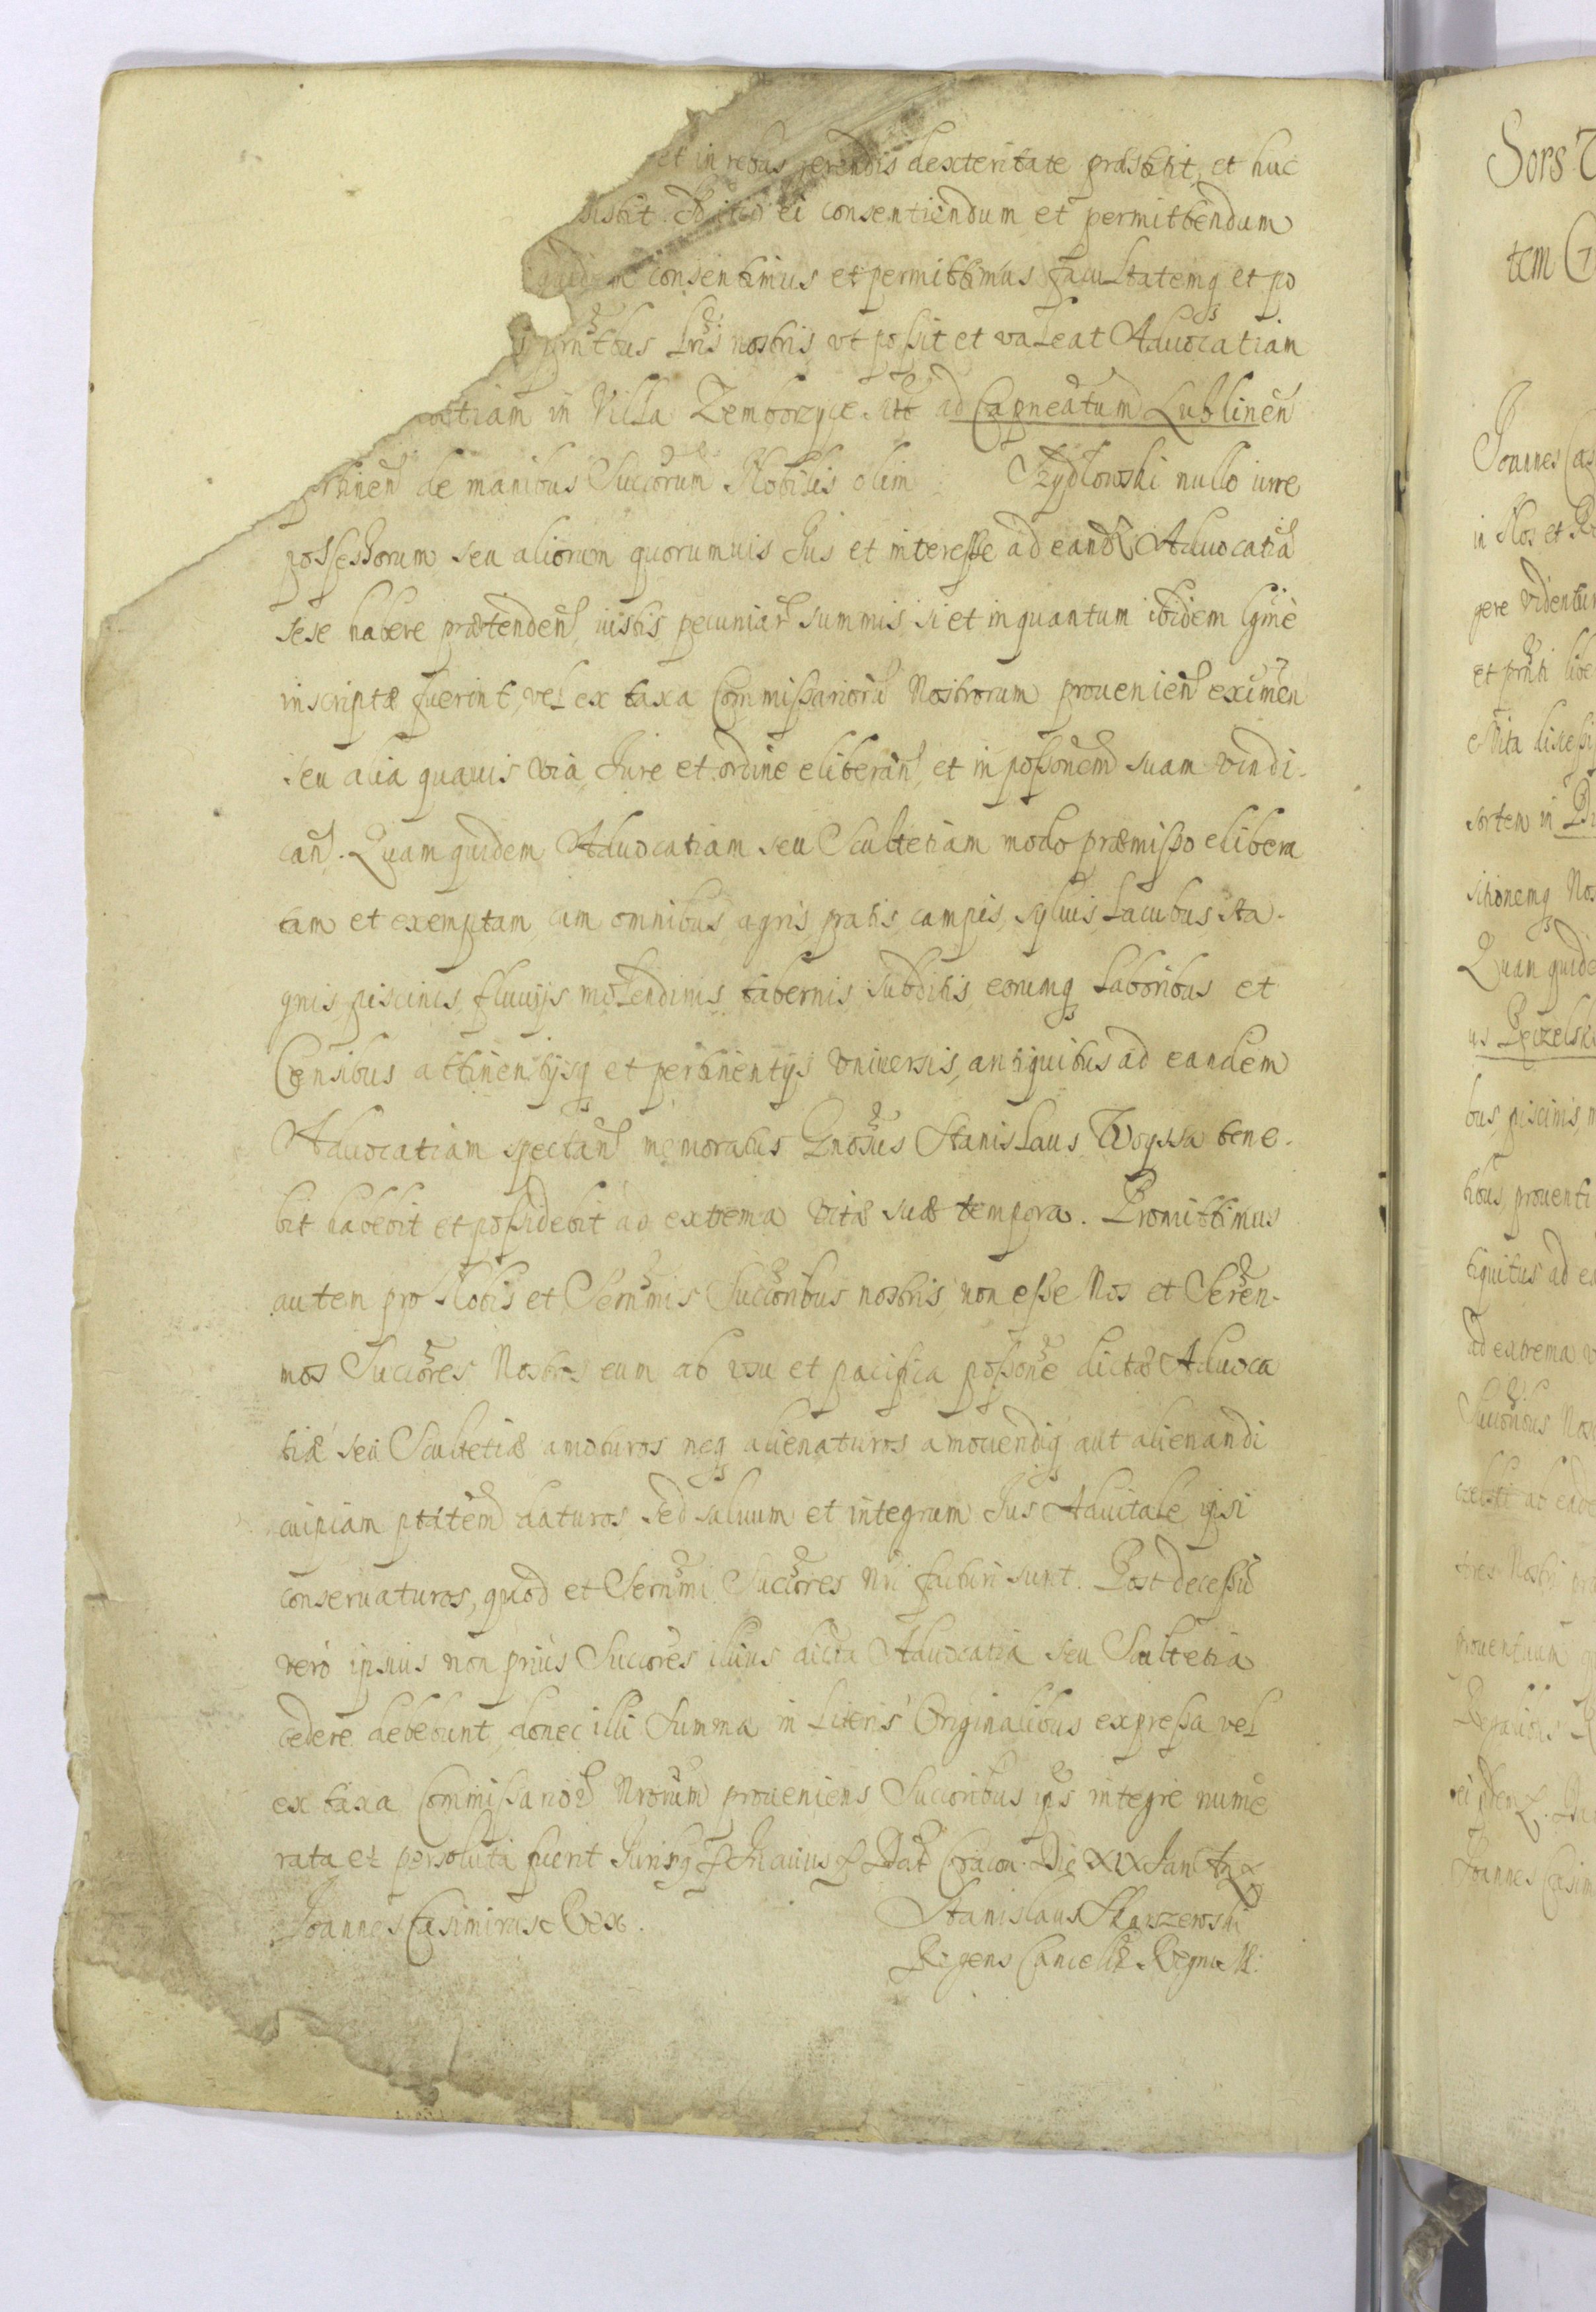 et in rebus gerendis dexteritate præstitit, et huc
ei consentiendum et permittendum
quidem consentimus et permittimus facultatemq et po
pntbus Lris nostris vt possit et valeat Aduocatiam
in Villa Zemborzyce ad Capneatum Lublinen
rtinen de manibus Succorum Nobilis olim Szydlowski nullo iure
possessorum seu aliorum quorumuis Jus et interesse ad eand Aduocatia
sese habere prætenden iustis pecuniar summis si et inquantum ibidem lgme
inscriptæ fuerint, vel ex taxa Commissarioru Nostrorum prouenien eximen
seu alia quauis via Jure et ordine eliberan, et in possonem suam vindi-
can. Quam quidem Aduocatiam seu Scultetiam modo præmisso elibera
tam et exemptam cum omnibus agris, pratis, campis, syluis, Lacubus sta-
gnis, piscinis, fluuijs molendinis tabernis subditis, eorumq Laboribus et
Censibus attinentijsq et pertinentijs vniuersis, antiquitus ad eandem
Aduocatiam spectan memoratus Gnosus Stanislaus Woyssa tene-
bit habebit et possidebit ad extrema vitæ suæ tempora. Promittimus
autem pro Nobis et Sernmis Succoribus nostris, non esse Nos et Seren-
mos Succores Nostros eum ab vsu et pacifica possone dictæ Aduoca
tiæ seu Scultetiæ amoturos neq alienaturos amouendiq aut alienandi
cuipiam ptatem daturos, sed saluum et integrum Jus Aduitale ipsi
conseruaturos, quod et Sernmi Succores nri facturi sunt. Post decessu
vero ipsius non prius Succores illius dicta Aduocatia seu Scultetia
cedere debebunt, donec illi Summa in Literis Originalibus expressa vel
ex taxa Commissarior Nrorum proueniens Succoribus ips integre nume
rata et persoluta fuerit Jurisq In cuius Dat Cracou. Die XIX Jan
Joannes Casimirus Rex. Stanislaus Skarszewski
Regens Cancell Regni
Sors
tem
in Nos et
pere videntur
et pnti
sortem in
sitionemq Nos
Quam quide
bus, piscinis, m
prouenti
tiquitus ad ea
ad extrema v
Succoribus Nos
prouentuum
Joannes Casim